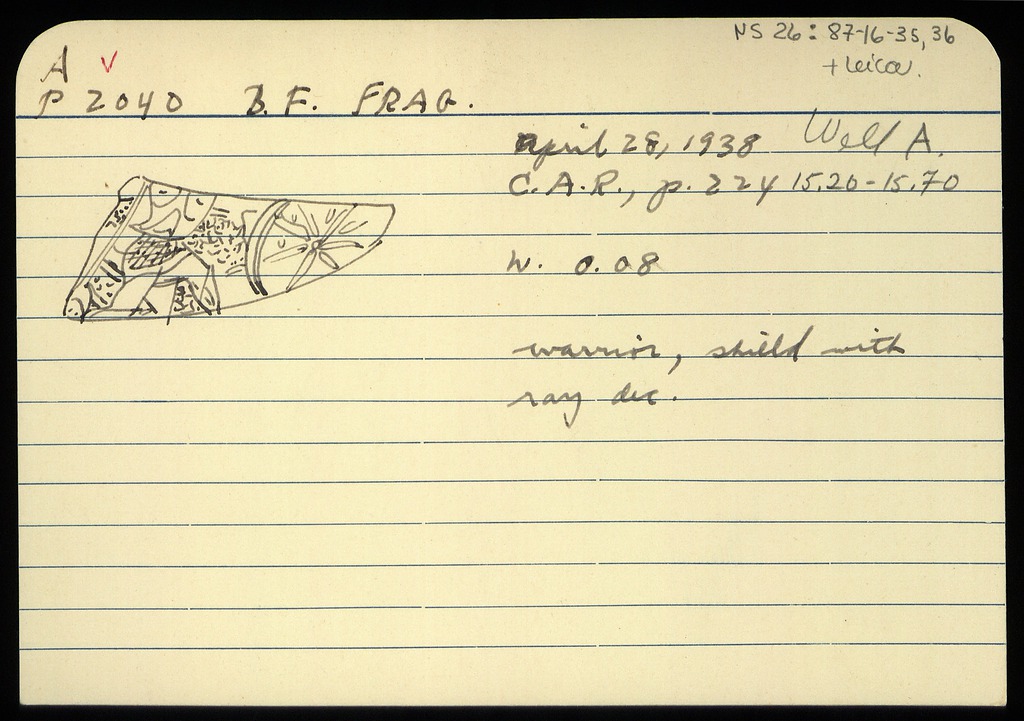 NS 26: 87-16-35, 36
+ Leica
A ✓
P 2040 B.F. FRAG.
April 28, 1938 Well A.
C.A.R., p. 224 15.20-15.70
W. 0.08
warrior, shield with
ray dec.